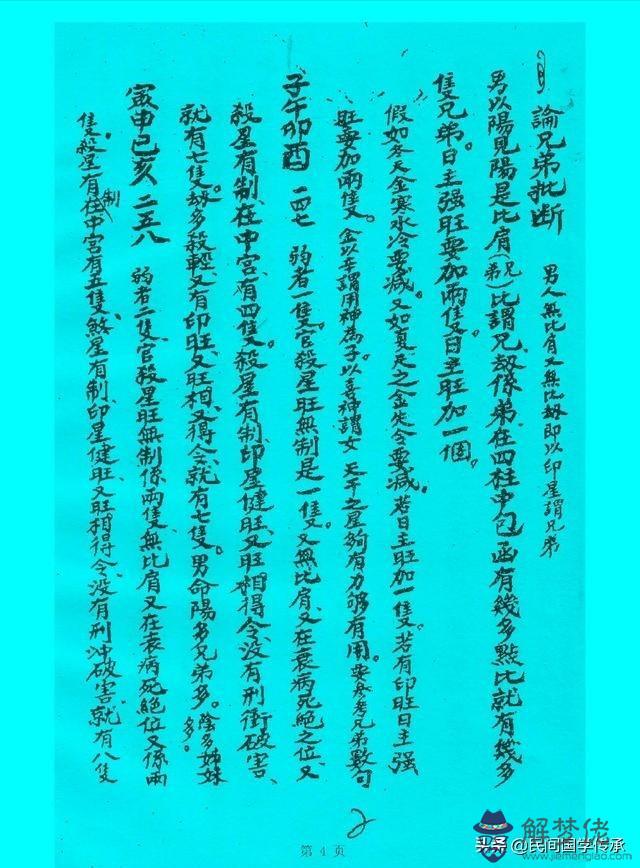 論兄弟批断 男人無比肩又無比劫即以印星謂兄弟
男以陽見陽是比肩(兄弟)比謂兄、劫係弟、在四柱中包函有幾多點比就有幾多
隻兄弟。日主强旺要加兩隻、日主旺加一個。
假如冬天金寒水冷要减。又如夏天之金失令要减。若日主旺加一隻。若有印旺日主强
旺要加兩隻。金以 謂用神為子以喜神謂女 天干之星夠有力够有用。要参考兄弟數句
子午卯酉 一四七 弱者一隻。官殺星旺無制是一隻。又無比肩、又在衰病死絕之位、又
殺星有制、在中宮、有四隻。殺星有制、印星健旺、又旺相得令、没有刑衝破害、
就有七隻。劫多殺輕、又有印旺、又旺相、又得令、就有七隻。男命陽多兄弟多。陰多姊妹多。
寅申已亥 二五八 弱者二隻、官殺星旺無制係兩隻、無比肩又在衰病死絕位又係兩
隻、殺星有制在中宮有五隻、煞星有制、印星健旺、又旺相得令、没有刑冲破害、就有八隻
2
第 4 页
头条 @民间国学传承
解梦佬
www.jiemenglao.com